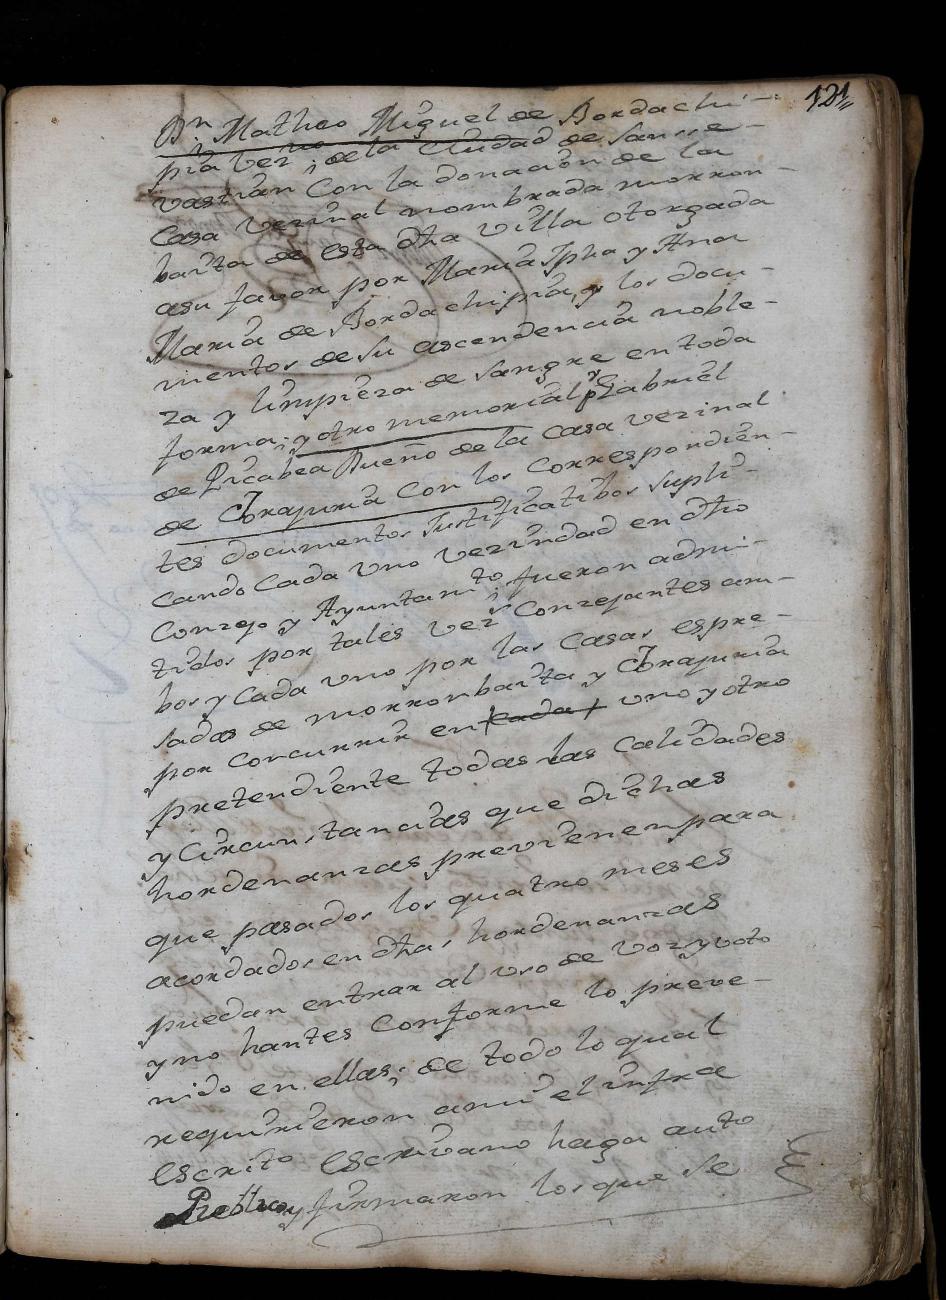 121
Dn Matheo Miguel de Bordachi-
pia vezno de la Ciudad de Sanse-
vastian con la donacion de la
Casa vezinal nombrada morron-
barta de esta dha villa otorgada
asu favor por Maria Jpha y Ana
Maria de Bordachipia, y los docu-
mentos de su ascendencia noble-
za y limpieza de sangre en toda
forma; y otro memorial pr Gabriel
de Picabea Dueño de la Casa vezinal
de Yrajuria con los correspondien-
tes documentos justificatibos supli-
cando Cada uno vezindad en dho
Conzejo y Ayuntamto; fueron admi-
tidos por tales vezs Conzejantes am-
bos y Cada uno por las Casas espre-
sadas de morronbarta y Yrajuria
por concurrir en cada uno y otro
pretendiente todas las calidades
y Circunstancias que dichas
hordenanzas previenen para
que pasados los quatro meses
acordados en dhas hordenanzas
puedan entrar al uso de voz y voto
y no hantes conforme lo preve-
nido en ellas; de todo lo qual
requirieron a mi el infra
escrito escrivano haga auto
Publico y firmaron los que se